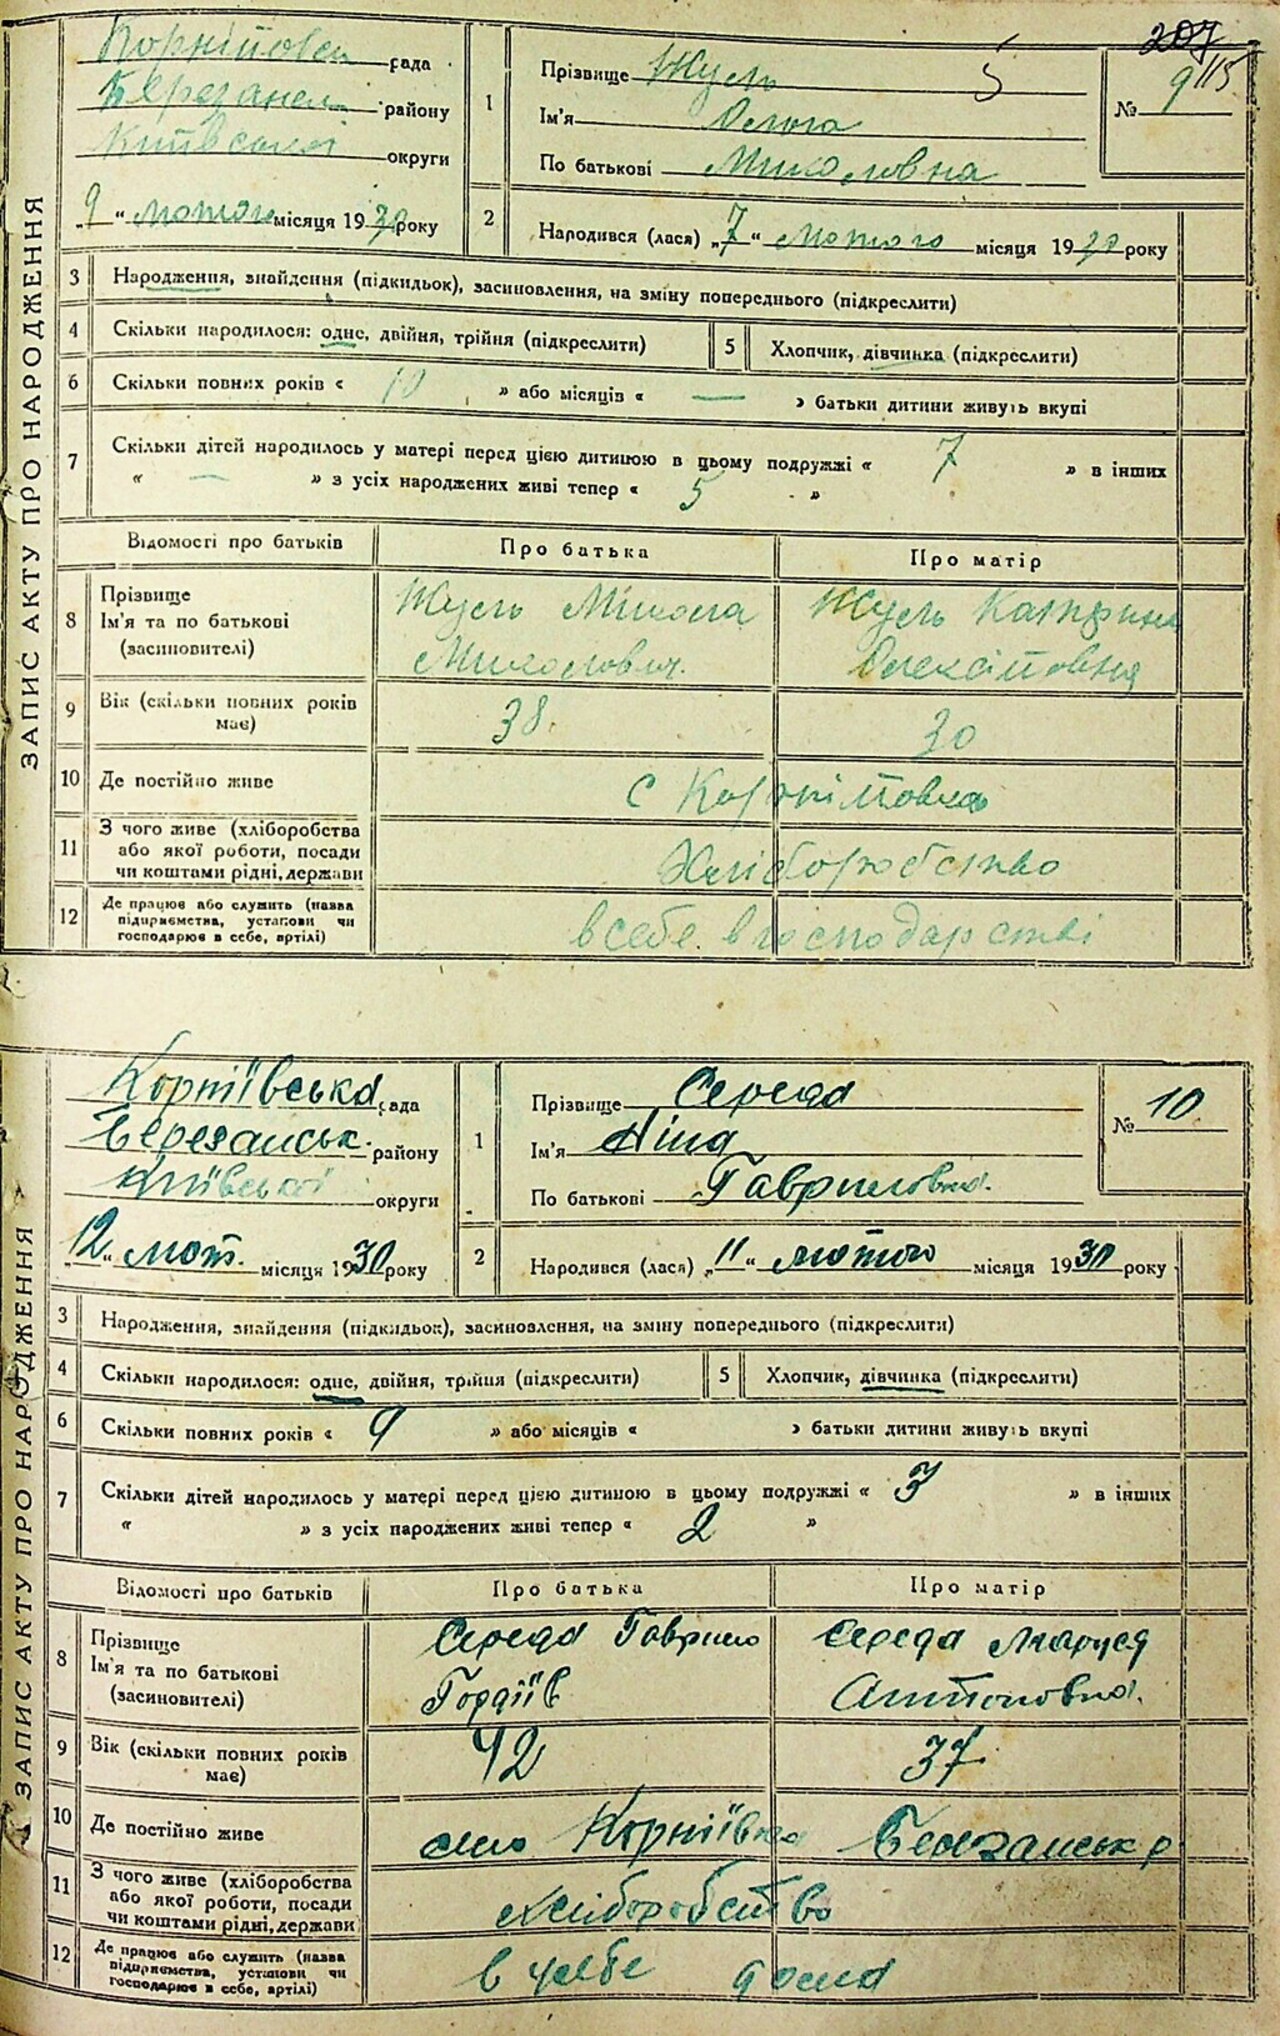 207
ЗАПИС АКТУ ПРО НАРОДЖЕННЯ
Корнійовск рада
Березанск району
Київської округи
„9“ лютого місяця 1930 року
1
Прізвище Жуль
Ім'я Ольга
По батькові Миколовна
№ 9
115
2
Народився (лася) „7“ лютого місяця 1930 року
3 Народження, знайдення (підкидьок), засиновлення, на зміну попереднього (підкреслити)
4 Скільки народилося: одне, двійня, трійня (підкреслити)
5 Хлопчик, дівчинка (підкреслити)
6 Скільки повних років « 10 » або місяців « — » батьки дитини живуть вкупі
7 Скільки дітей народилось у матері перед цією дитиною в цьому подружжі « 7 » в інших
« — » з усіх народжених живі тепер « 5 »
Відомості про батьків Про батька Про матір
8 Прізвище Ім'я та по батькові (засиновителі)
Жуль Мікола Миколович.
Жуль Катрина Олексійовня
9 Вік (скільки повних років має) 38. 30
10 Де постійно живе с Корнійовка
11 З чого живе (хліборобства або якої роботи, посади чи коштами рідні, держави
Хліборобство
12 Де працює або служить (назва підприємства, установи чи господарює в себе, артілі)
в себе. в господарстві
ЗАПИС АКТУ ПРО НАРОДЖЕННЯ
Корніївська рада
Березанськ. району
Київської округи
„12“ лют. місяця 1930 року
1
Прізвище Середа
Ім'я Ніна
По батькові Гавриловна.
№ 10
2
Народився (лася) „11“ лютого місяця 1930 року
3 Народження, знайдення (підкидьок), засиновлення, на зміну попереднього (підкреслити)
4 Скільки народилося: одне, двійня, трійня (підкреслити)
5 Хлопчик, дівчинка (підкреслити)
6 Скільки повних років « 9 » або місяців « » батьки дитини живуть вкупі
7 Скільки дітей народилось у матері перед цією дитиною в цьому подружжі « 3 » в інших
« » з усіх народжених живі тепер « 2 »
Відомості про батьків Про батька Про матір
8 Прізвище Ім'я та по батькові (засиновителі)
Середа Гаврило Гордіїв
Середа Маруся Антоновна.
9 Вік (скільки повних років має) 42 37
10 Де постійно живе село Корніївка Березанськ р
11 З чого живе (хліборобства або якої роботи, посади чи коштами рідні, держави
хліборобство
12 Де працює або служить (назва підприємства, установи чи господарює в себе, артілі)
в себе дома